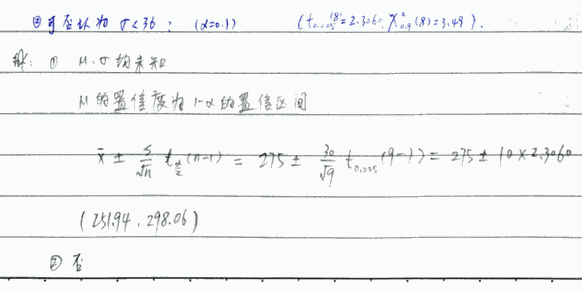 ②可否认为 σ<36? (α=0.1) (t₀.₀₂₅(8)=2.3060, χ²₀.₉(8)=3.49).
解: ① μ.σ均未知
μ的置信度为1-α的置信区间
x̄ ± s/√n t_{α/2}(n-1) = 275 ± 30/√9 t₀.₀₂₅(9-1) = 275 ± 10×2.3060
(251.94, 298.06)
② 否